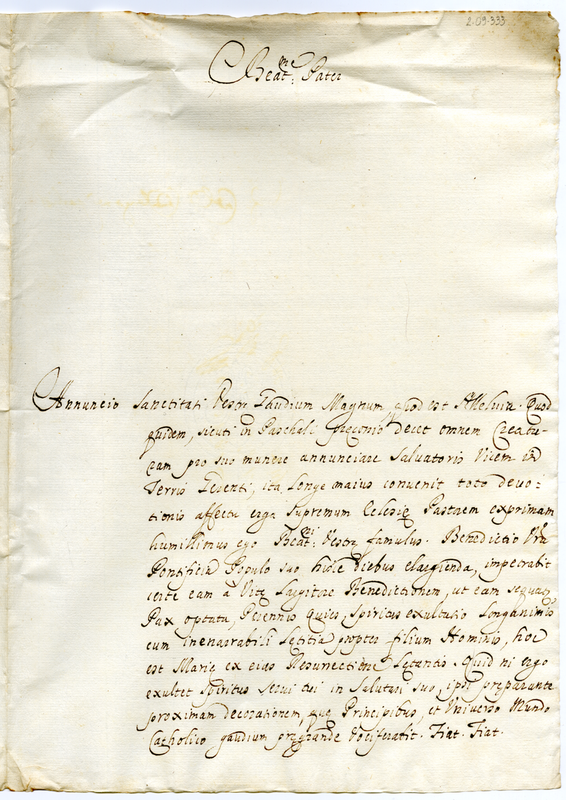 2-09-333
Beat:me Pater
Annuncio Sanctitati Vestrę Gaudium Magnum, quod est Alleluia. Quod
quidem, sicuti in Paschali preconio decet omnem Creatu-
ram pro suo munere annunciare Salvatoris Vicem in
Terris Gerenti, ita longe maius convenit toto devo-
tionis affectu erga Supremum Eclesię Pastorem exprimam
humillimus ego Beat:ni Vestrę famulus. Benedictio
Pontificia Populo suo hisce diebus elargienda, impetrabit
certe eam a Vitę Largitore Benedictionem, ut eam sequatur
Pax optata, Perennis Quies, Spiritus exultatio Longanimis
cum inenarrabili Letitia propter filium Hominis, hoc
est Marię ex eius Resurrectione Letantis. Quid ni ergo
exultet Spiritus Servi tui in Salutari suo, ipsi preparante
proximam decorationem, quę Principibus, et Universo Mundo
Catholico gaudium pręgrande vociferatit. Fiat. Fiat.